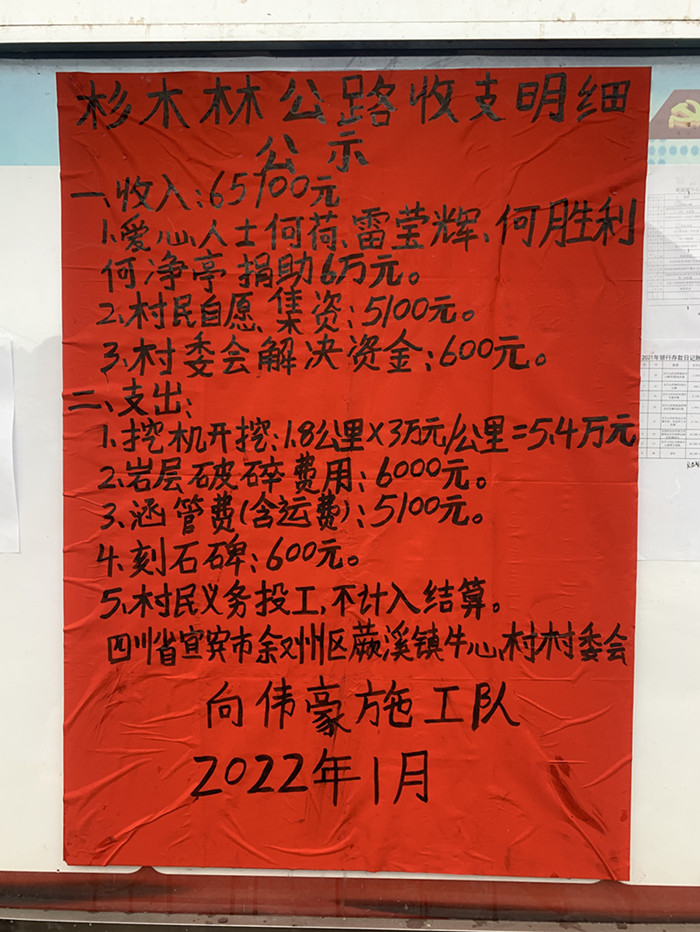 杉木林公路收支明细
公示
一、收入:65100元
1、爱心人士何荷、雷莹辉、何胜利
何净亭捐助6万元。
2、村民自愿集资:5100元。
3、村委会解决资金:600元。
二、支出:
1、挖机开挖:1.8公里×3万元/公里=5.4万元
2、岩层破碎费用:6000元。
3、涵管费(含运费):5100元。
4、刻石碑:600元。
5、村民义务投工,不计入结算。
四川省宜宾市叙州区蕨溪镇牛心村村委会
向伟豪施工队
2022年1月